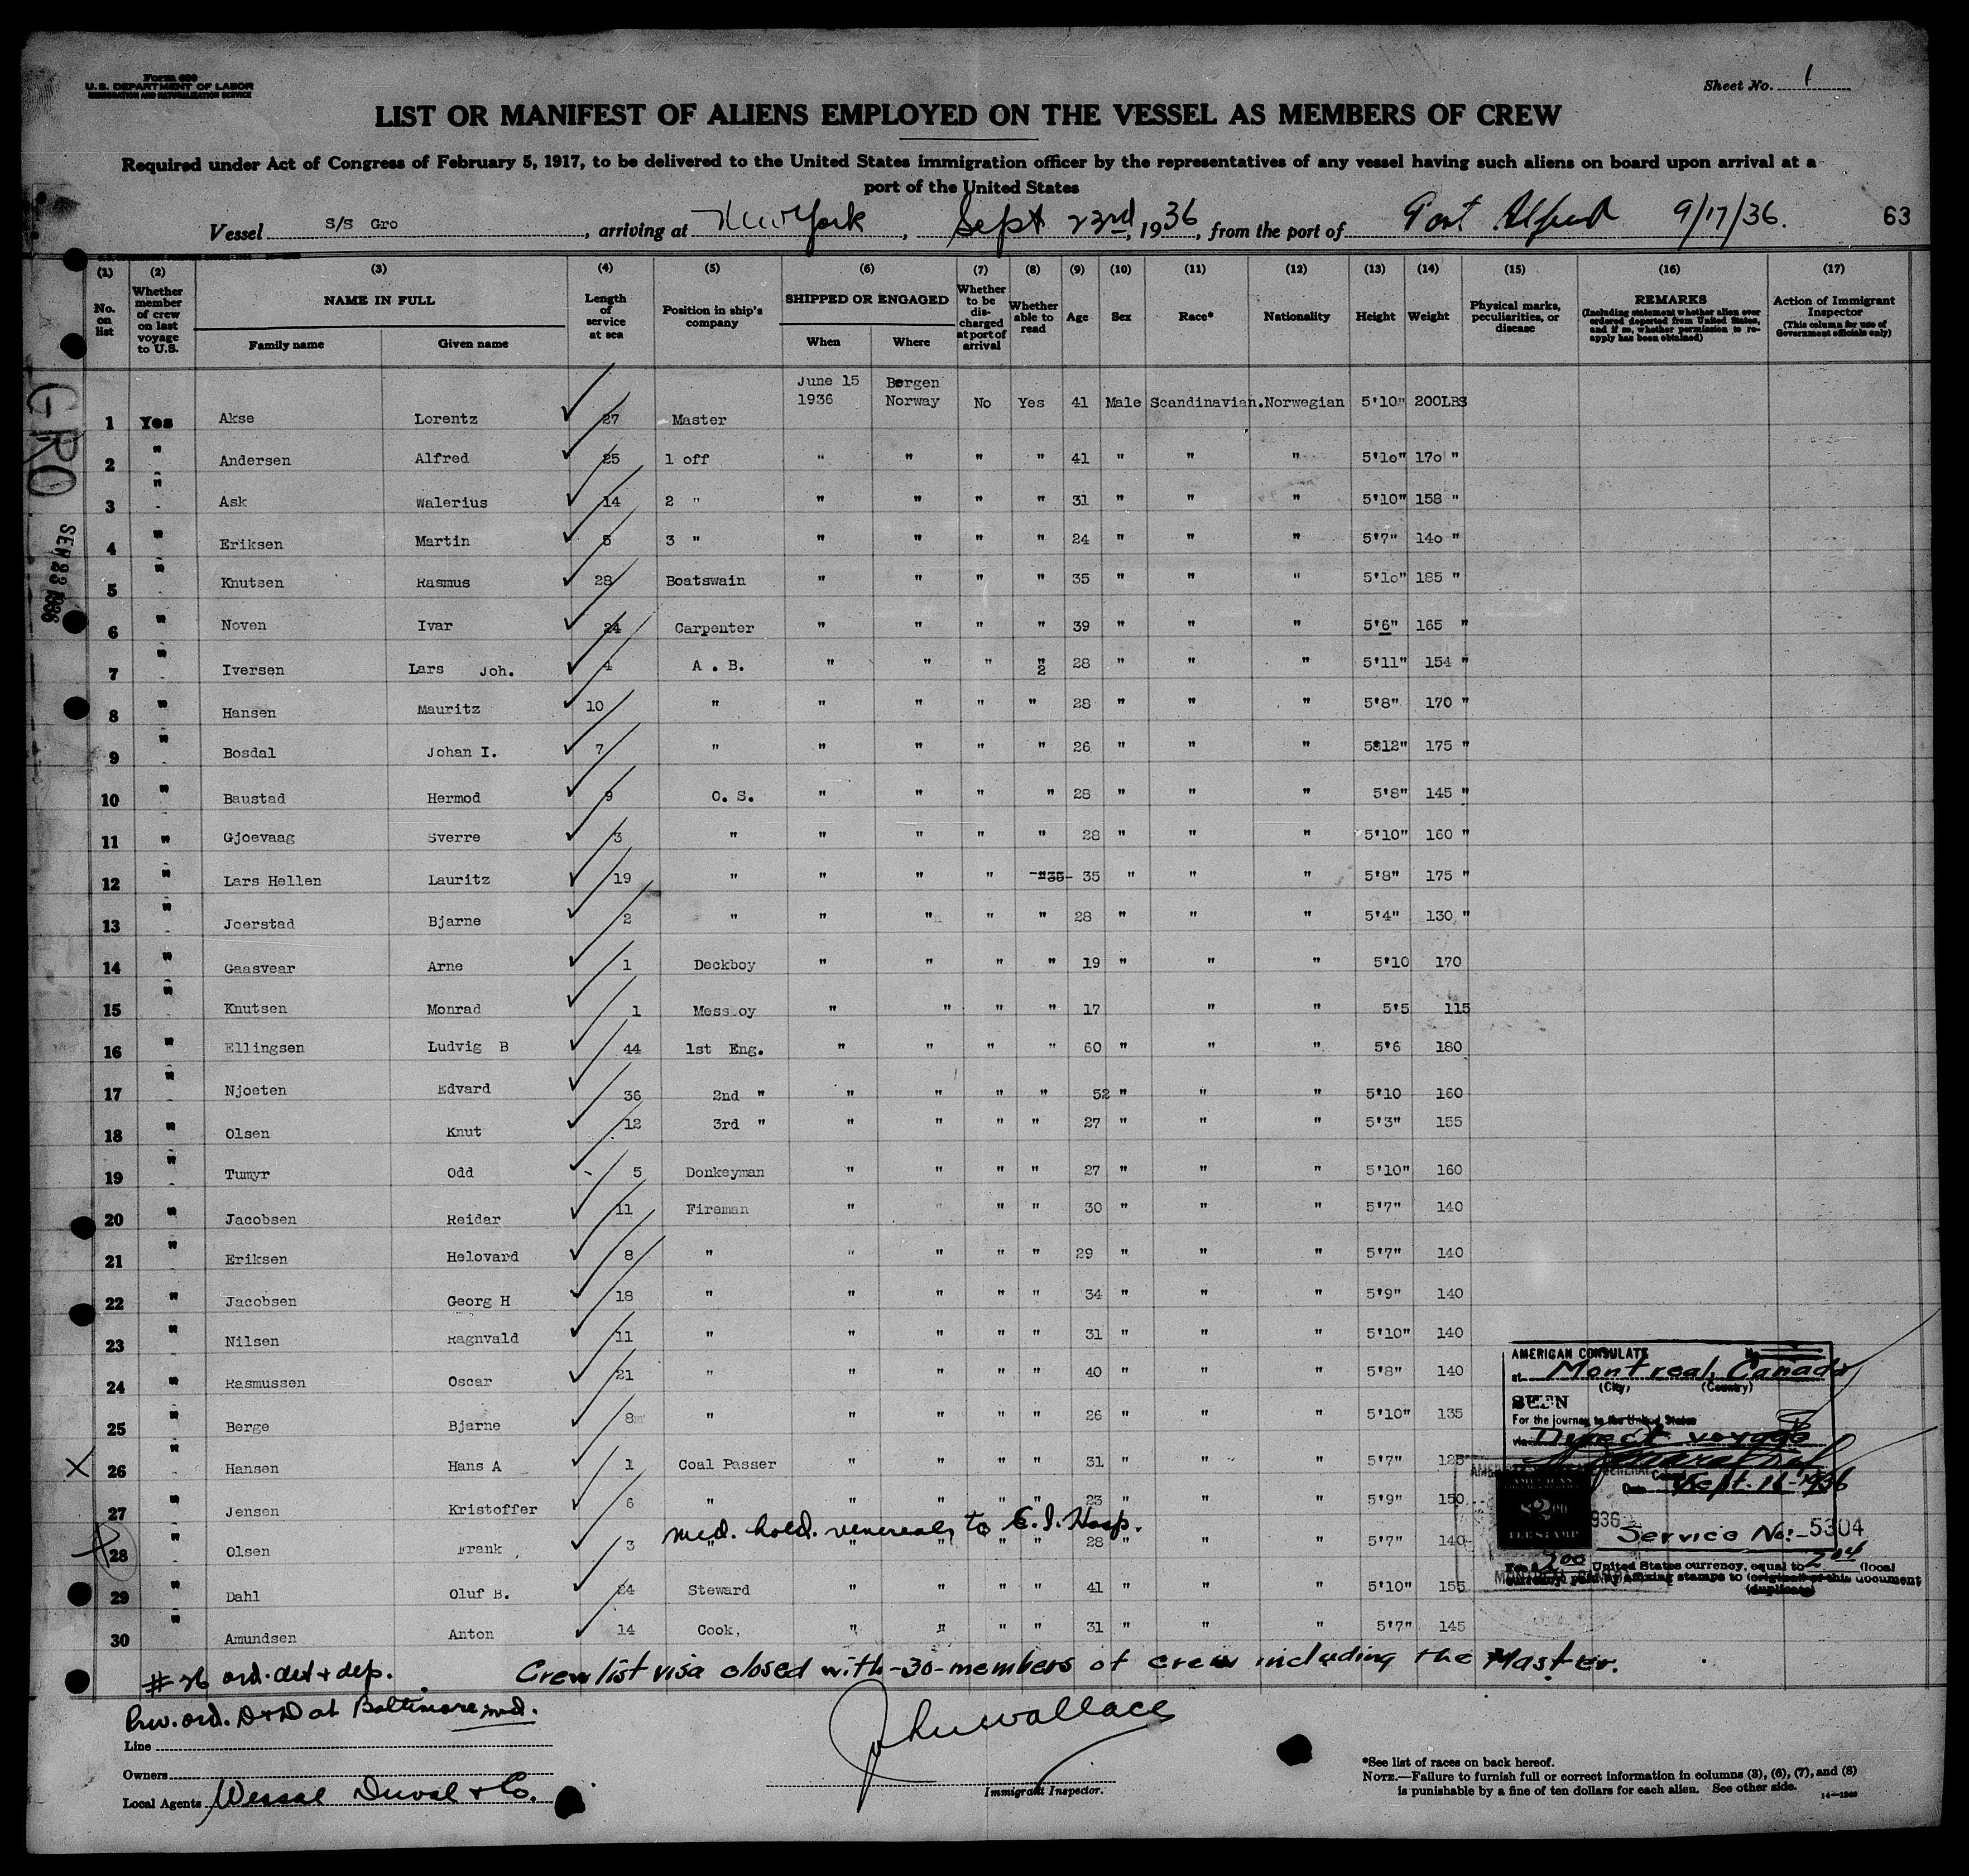 Form 680
U.S. DEPARTMENT OF LABOR
IMMIGRATION AND NATURALIZATION SERVICE
Sheet No. 1
LIST OR MANIFEST OF ALIENS EMPLOYED ON THE VESSEL AS MEMBERS OF CREW
Required under Act of Congress of February 5, 1917, to be delivered to the United States immigration officer by the representatives of any vessel having such aliens on board upon arrival at a
port of the United States
Vessel S/S Gro, arriving at New York, Sept 23rd, 1936, from the port of Port Alfred 9/17/36. 63
(1) (2) (3) (4) (5) (6) (7) (8) (9) (10) (11) (12) (13) (14) (15) (16) (17)
No. on list
Whether member of crew on last voyage to U.S.
NAME IN FULL
Family name Given name
Length of service at sea
Position in ship's company
SHIPPED OR ENGAGED
When Where
Whether to be discharged at port of arrival
Whether able to read
Age Sex Race* Nationality Height Weight
Physical marks, peculiarities, or disease
REMARKS
(Including statement whether alien ever ordered deported from United States, and if so, whether permission to reapply has been obtained)
Action of Immigrant Inspector
(This column for use of Government officials only)
GRO
SEP 23 1936
1 Yes Akse Lorentz 27 Master June 15 1936 Bergen Norway No Yes 41 Male Scandinavian. Norwegian 5'10" 200LBS
2 " Andersen Alfred 25 1 off " " " " 41 " " " 5'1o" 17o "
3 " Ask Walerius 14 2 " " " " " 31 " " " 5'10" 158 "
4 " Eriksen Martin 5 3 " " " " " 24 " " " 5'7" 14o "
5 " Knutsen Rasmus 28 Boatswain " " " " 35 " " " 5'1o" 185 "
6 " Noven Ivar 24 Carpenter " " " " 39 " " " 5'6" 165 "
7 " Iversen Lars Joh. 4 A . B. " " " " 2 28 " " " 5'11" 154 "
8 " Hansen Mauritz 10 " " " " " 28 " " " 5'8" 170 "
9 " Bosdal Johan I. 7 " " " " " 26 " " " 5812" 175 "
10 " Baustad Hermod 9 O. S. " " " " 28 " " " 5'8" 145 "
11 " Gjoevaag Sverre 3 " " " " " 28 " " " 5'10" 160 "
12 " Lars Hellen Lauritz 19 " " " " "35- 35 " " " 5'8" 175 "
13 " Joerstad Bjarne 2 " " " " " 28 " " " 5'4" 130 "
14 " Gaasvear Arne 1 Deckboy " " " " 19 " " " 5'10 170
15 " Knutsen Monrad 1 Mess oy " " " " 17 " " 5'5 115
16 " Ellingsen Ludvig B 44 1st Eng. " " " " 60 " " " 5'6 180
17 " Njoeten Edvard 36 2nd " " " " " 52 " " " 5'10 160
18 " Olsen Knut 12 3rd " " " " " 27 " " " 5'3" 155
19 " Tumyr Odd 5 Donkeyman " " " " 27 " " " 5'10" 160
20 " Jacobsen Reidar 11 Fireman " " " " 30 " " " 5'7" 140
21 " Eriksen Helovard 8 " " " " " 29 " " " 5'7" 140
22 " Jacobsen Georg H 18 " " " " " 34 " " " 5'9" 140
23 " Nilsen Ragnvald 11 " " " " " 31 " " " 5'10" 140
24 " Rasmussen Oscar 21 " " " " " 40 " " " 5'8" 140
25 " Berge Bjarne 8m " " " " " 26 " " " 5'10" 135
X 26 " Hansen Hans A 1 Coal Passer " " " " 31 " " " 5'7" 125
27 " Jensen Kristoffer 6 " " " " " 23 " " " 5'9" 150
med. hold. venereal, to E.I. Hosp.
X 28 " Olsen Frank 3 " " " " " 28 " " " 5'7" 140
29 " Dahl Oluf B. 24 Steward " " " " 41 " " " 5'10" 155
30 " Amundsen Anton 14 Cook, " " " " 31 " " " 5'7" 145
AMERICAN CONSULATE No
at Montreal, Canada
(City) (Country)
SEEN
For the journey to the United States
via Direct voyage
Date Sept. 11-1936
$2.00
FEE STAMP
936
Service No:- 5304
Fee $ 2.00 United States currency, equal to 2.04 (local
currency) paid by affixing stamps to (original of this document
(duplicate)
#26 ord. det + dep. Crew list visa closed with -30- members of crew including the Master.
Prev. ord. D+D at Baltimore, Md.
Line
Owners
Local Agents Wessal Duval & Co.
John Wallace
Immigrant Inspector.
*See list of races on back hereof.
NOTE.—Failure to furnish full or correct information in columns (3), (6), (7), and (8)
is punishable by a fine of ten dollars for each alien. See other side.
14—1240